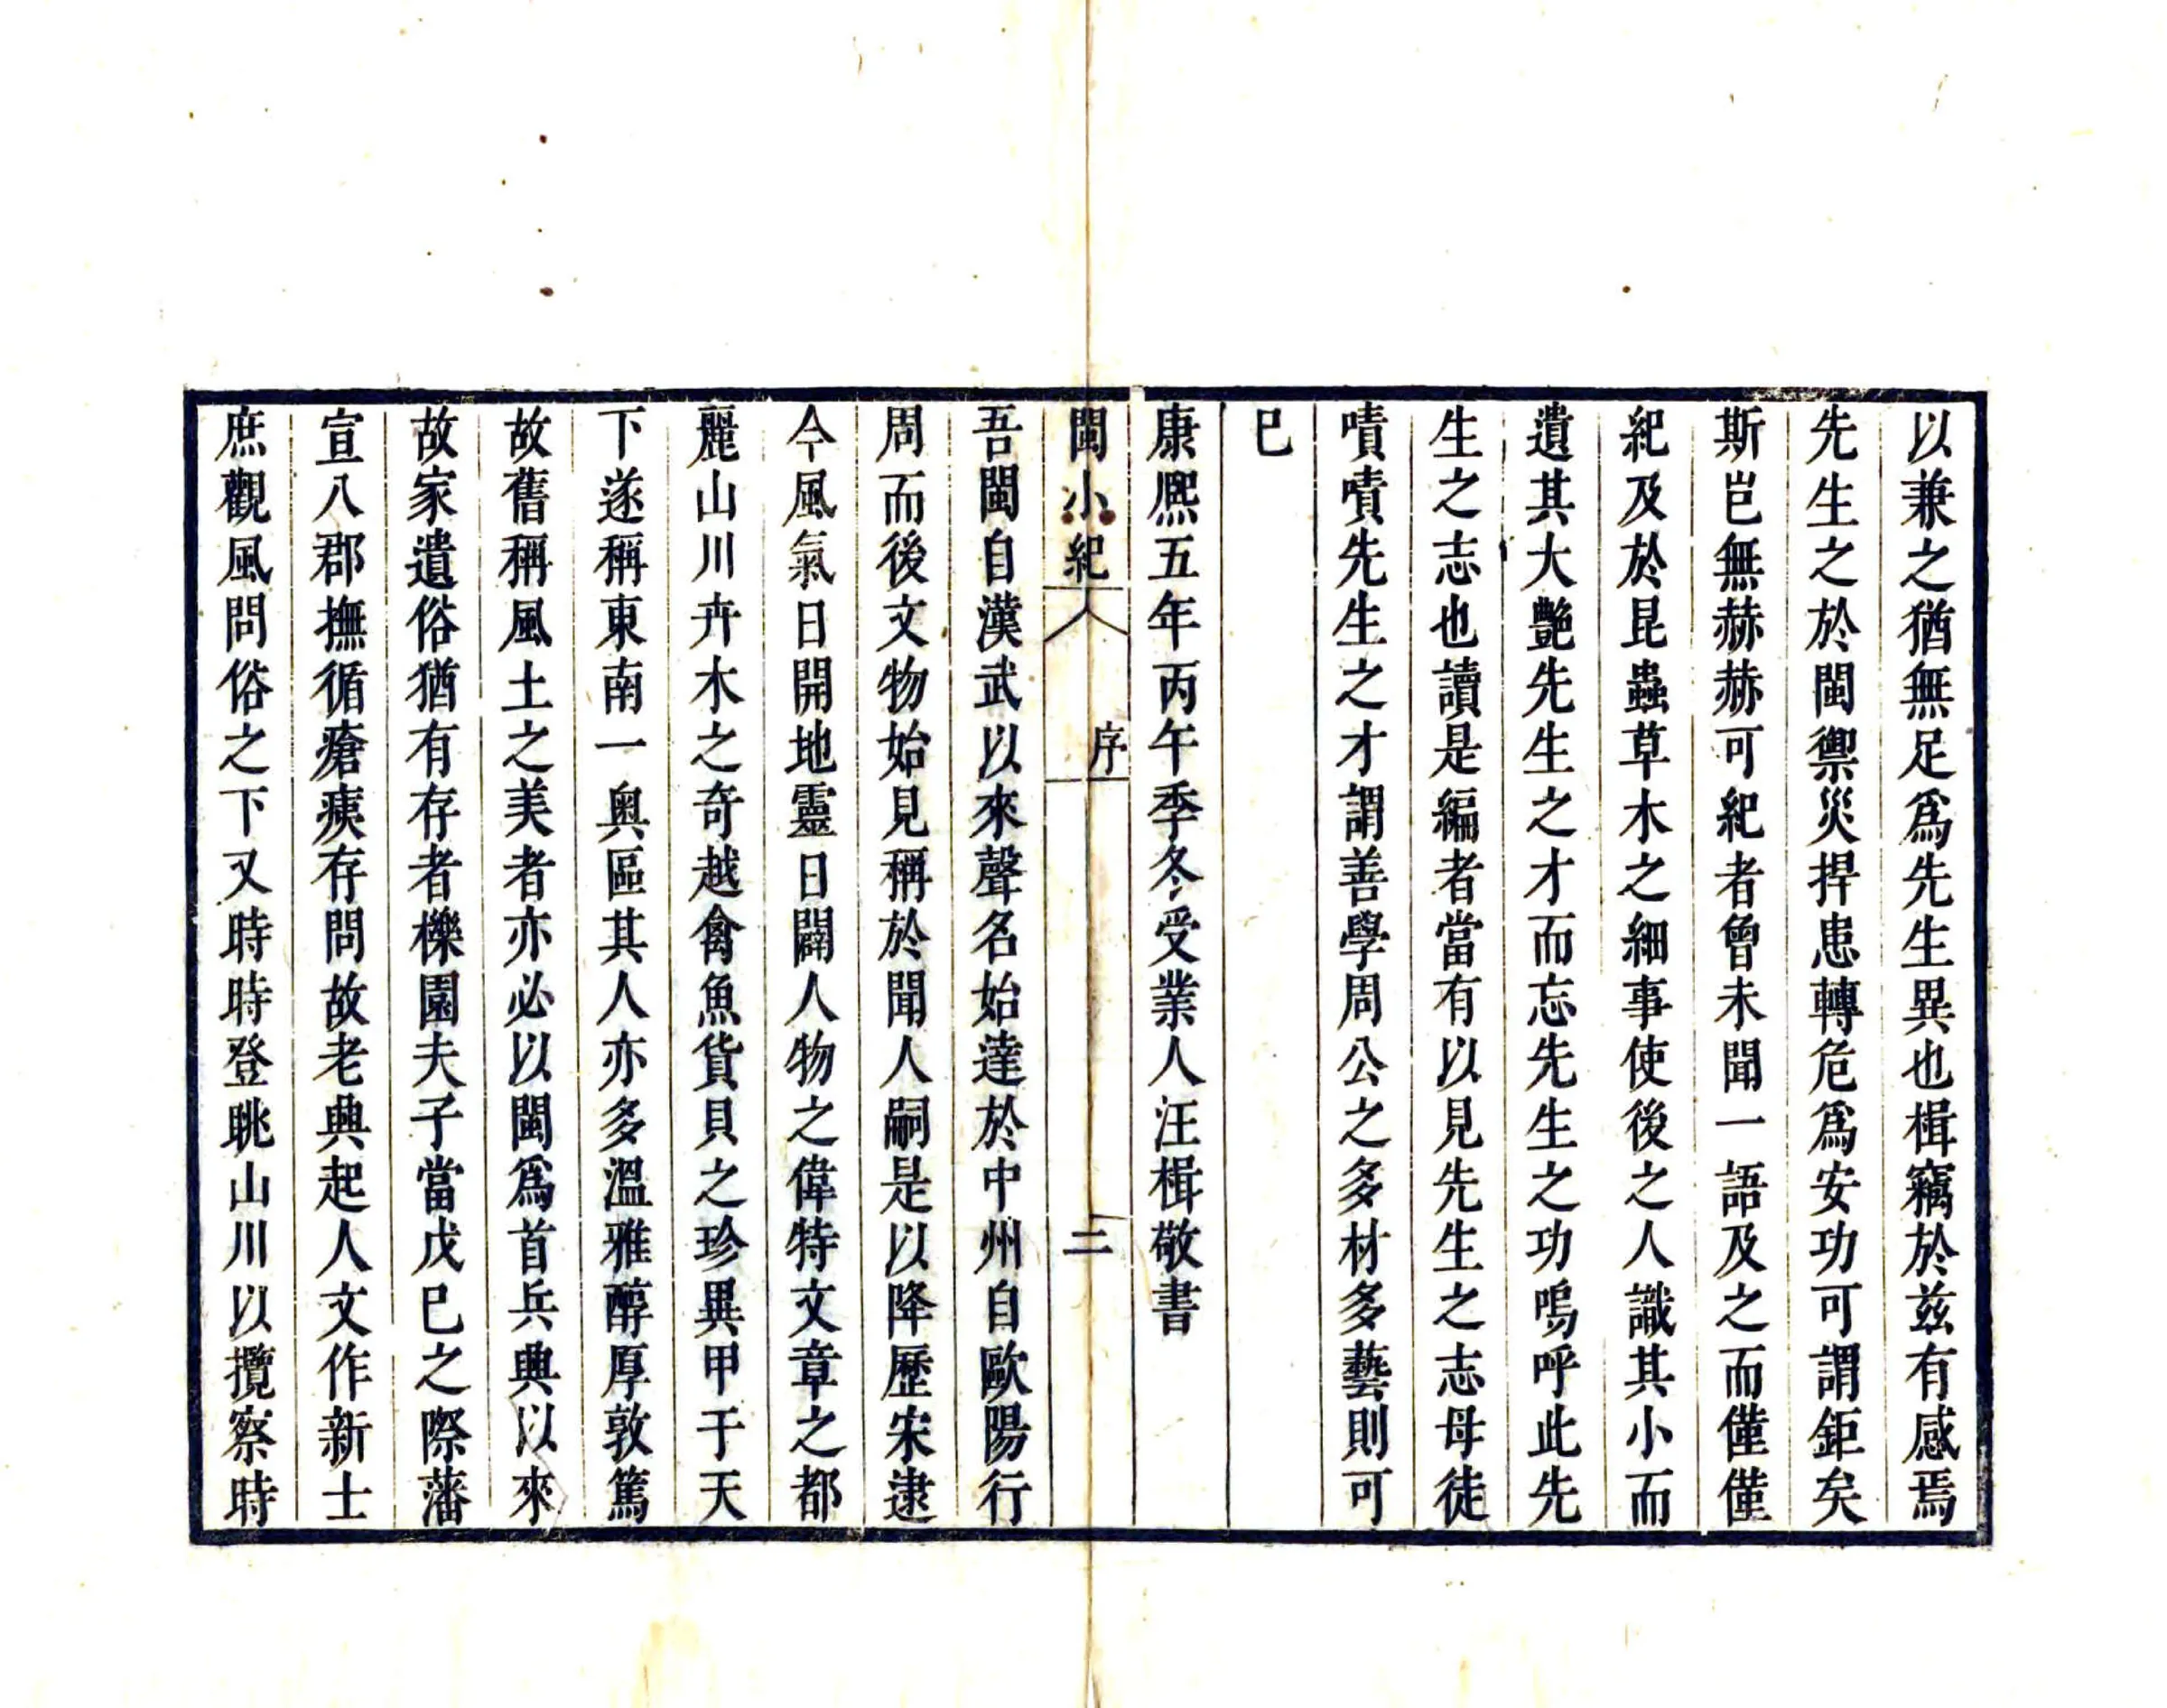 以兼之猶無足爲先生異也楫竊於兹有感焉
先生之於閩禦災捍患轉危爲安功可謂鉅矣
斯豈無赫赫可紀者曾未聞一語及之而僅僅
紀及於昆蟲草木之細事使後之人識其小而
遺其大艷先生之才而忘先生之功嗚呼此先
生之志也讀是編者當有以見先生之志毋徒
嘖嘖先生之才謂善學周公之多材多藝則可
已
康熙五年丙午季冬受業人汪楫敬書
閩小紀 序 二
吾閩自漢武以來聲名始達於中州自歐陽行
周而後文物始見稱於聞人嗣是以降歷宋逮
今風氣日開地靈日闢人物之偉特文章之都
麗山川卉木之奇越禽魚貨貝之珍異甲于天
下遂稱東南一奥區其人亦多溫雅醇厚敦篤
故舊稱風土之美者亦必以閩爲首兵興以來
故家遺俗猶有存者櫟園夫子當戊巳之際藩
宣八郡撫循瘡痍存問故老興起人文作新士
庶觀風問俗之下又時時登眺山川以攬察時